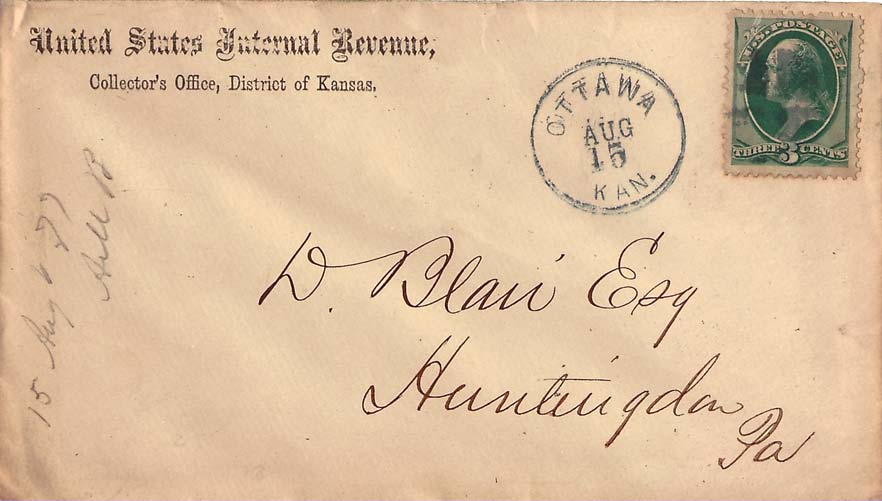 United States Internal Revenue,
Collector's Office, District of Kansas.
OTTAWA
AUG
15
KAN.
U.S. POSTAGE
THREE 3 CENTS
D. Blair Esq
Huntingdon
Pa
15 Aug 77